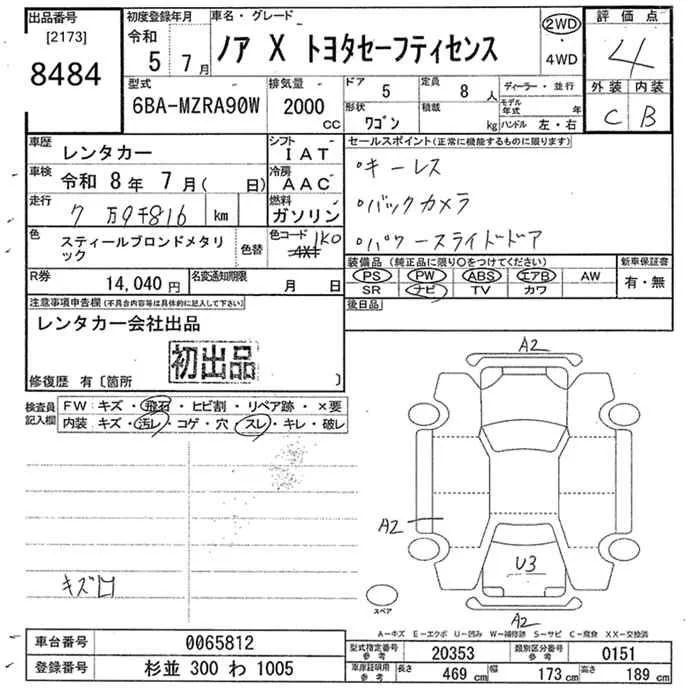 出品番号
[2173]
8484
初度登録年月
令和
5 年 7 月
車名・グレード
ノア X トヨタセーフティセンス
2WD
・
4WD
評価点
4
外装 内装
C B
型式
6BA-MZRA90W
排気量
2000 CC
ドア 5
定員 8 人
形状 ワゴン
積載 kg
ディーラー・並行
モデル年式 年
ハンドル 左・右
車歴
レンタカー
シフト
IAT
車検 令和 8 年 7 月 ( 日)
冷房
AAC
走行
7万9千816 km
燃料
ガソリン
色
スティールブロンドメタリック
色替
色コード 1K0
4X1
R券 14,040 円
名変通知期限 月 日
セールスポイント(正常に機能するものに限ります)
・キーレス
・バックカメラ
・パワースライドドア
装備品(純正品に限り○をつけてください)
PS PW ABS エアB AW
SR ナビ TV カワ
新車保証書
有・無
後日品
注意事項申告欄(不具合内容等は具体的に記入して下さい)
レンタカー会社出品
初出品
修復歴 有〔箇所 〕
検査員記入欄
FW: キズ・飛石・ヒビ割・リペア跡・×要
内装: キズ・汚レ・コゲ・穴・スレ・キレ・破レ
キズ
A2
A2
U3
A2
スペア
A-キズ E-エクボ U-凹み W-補修跡 S-サビ C-腐食 XX-交換済
車台番号 0065812
登録番号 杉並 300 わ 1005
型式指定番号 参考 20353
類別区分番号 参考 0151
車庫証明用 参考 長さ 469 cm 幅 173 cm 高さ 189 cm